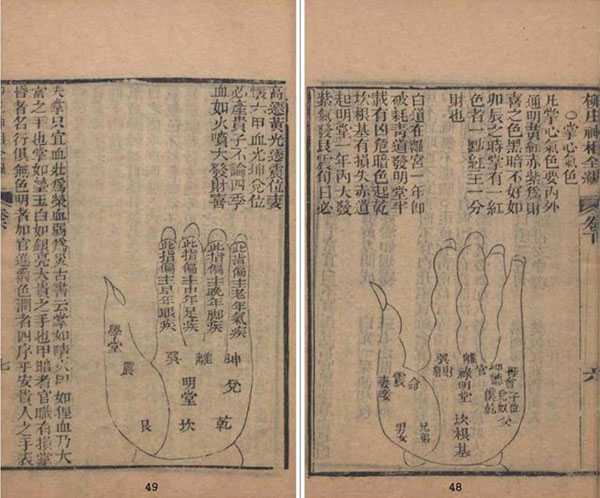 柳庄神相全編
○掌心氣色
凡掌心氣色要內外
通明黃紅赤紫爲財
喜之色黑暗不好如
卯辰之時掌有一紅
色者一點紅主一分
財也
白這在離宮一年卸
破耗靑這發明堂半
載有凶危暗色起乾
坎根基有損失赤道
起明堂一年內大發
紫氣發艮震旬日必
官
離祿明堂
坎根基
巽財
命
震
妻妾
兄弟
男女
六
48
高遷黃光透震位妻
懷六甲血光坤兌位
必產貴子不論四季
血如火噴大發財喜
此指偏主老年氣疾
此指偏主晚年脚疾
此指偏主中年足疾
此指偏主早年眼疾
坤
兌
乾
離
明堂
坎
巽
震
艮
學堂
夫掌只宜血壯爲榮血弱爲災古書云掌如噴火如猩血乃大
富之手也掌如玉白如銀亮大貴之手也甲暗者官職有損掌
者名行俱無色明者加官進色潤者四序平安貴人之手表
七
49